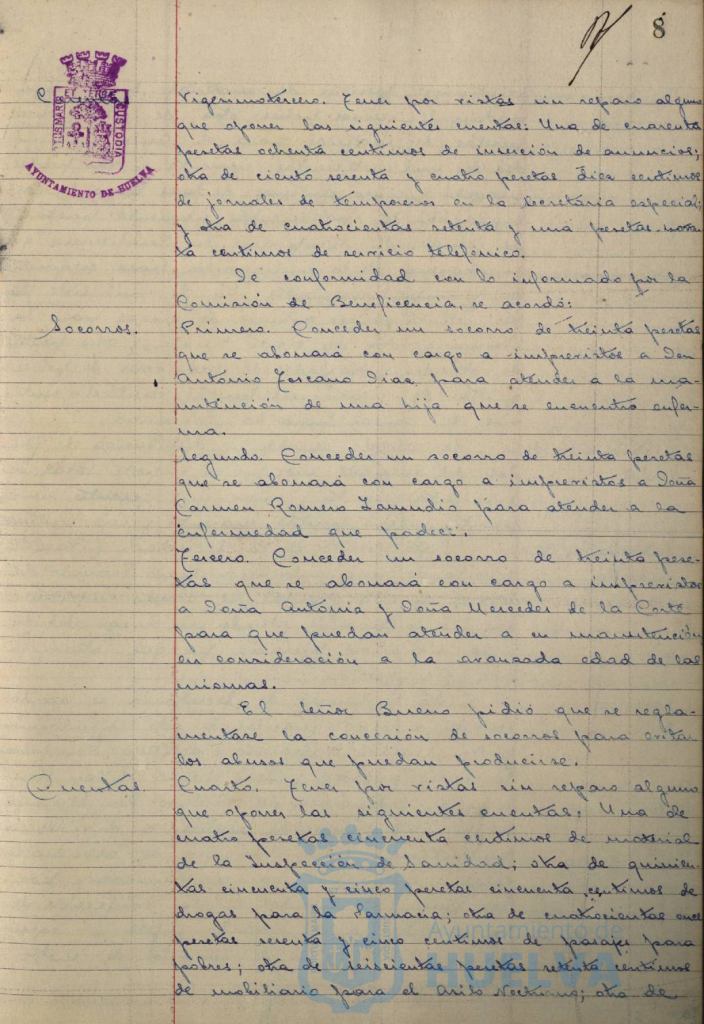 8
Cuentas
ET TERRAE
CUSTODIA
AYUNTAMIENTO DE HUELVA
Vigesimotercero. Tener por vistas sin reparo alguno
que oponer las siguientes cuentas: Una de cuarenta
pesetas ochenta centimos de inserción de anuncios;
otra de ciento sesenta y cuatro pesetas diez centimos
de jornales de temporeros en la Secretaria especial;
y otra de cuatrocientas setenta y una pesetas noven-
ta centimos de servicio telefónico.
De conformidad con lo informado por la
Comisión de Beneficencia, se acordó:
Socorros.
Primero. Conceder un socorro de treinta pesetas
que se abonará con cargo a imprevistos a Don
Antonio Toscano Diaz para atender a la ma-
nutención de una hija que se encuentra enfer-
ma.
Segundo. Conceder un socorro de treinta pesetas
que se abonará con cargo a imprevistos a Doña
Carmen Romero Zamudio para atender a la
enfermedad que padece.
Tercero. Conceder un socorro de treinta pese-
tas que se abonará con cargo a imprevistos
a Doña Antonia y Doña Mercedes de la Corte
para que puedan atender a su manutención
en consideración a la avanzada edad de las
mismas.
El Señor Bueno pidió que se regla-
mentase la concesión de socorros para evitar
los abusos que puedan producirse.
Cuentas.
Cuarto. Tener por vistas sin reparo alguno
que oponer las siguientes cuentas: Una de
cuatro pesetas cincuenta centimos de material
de la Inspección de Sanidad; otra de quinien-
tas cincuenta y cinco pesetas cincuenta centimos de
drogas para la Farmacia; otra de cuatrocientas once
pesetas sesenta y cinco centimos de pasajes para
pobres; otra de seiscientas pesetas setenta centimos
de mobiliario para el Asilo Nocturno; otra de
Ayuntamiento de
HUELVA